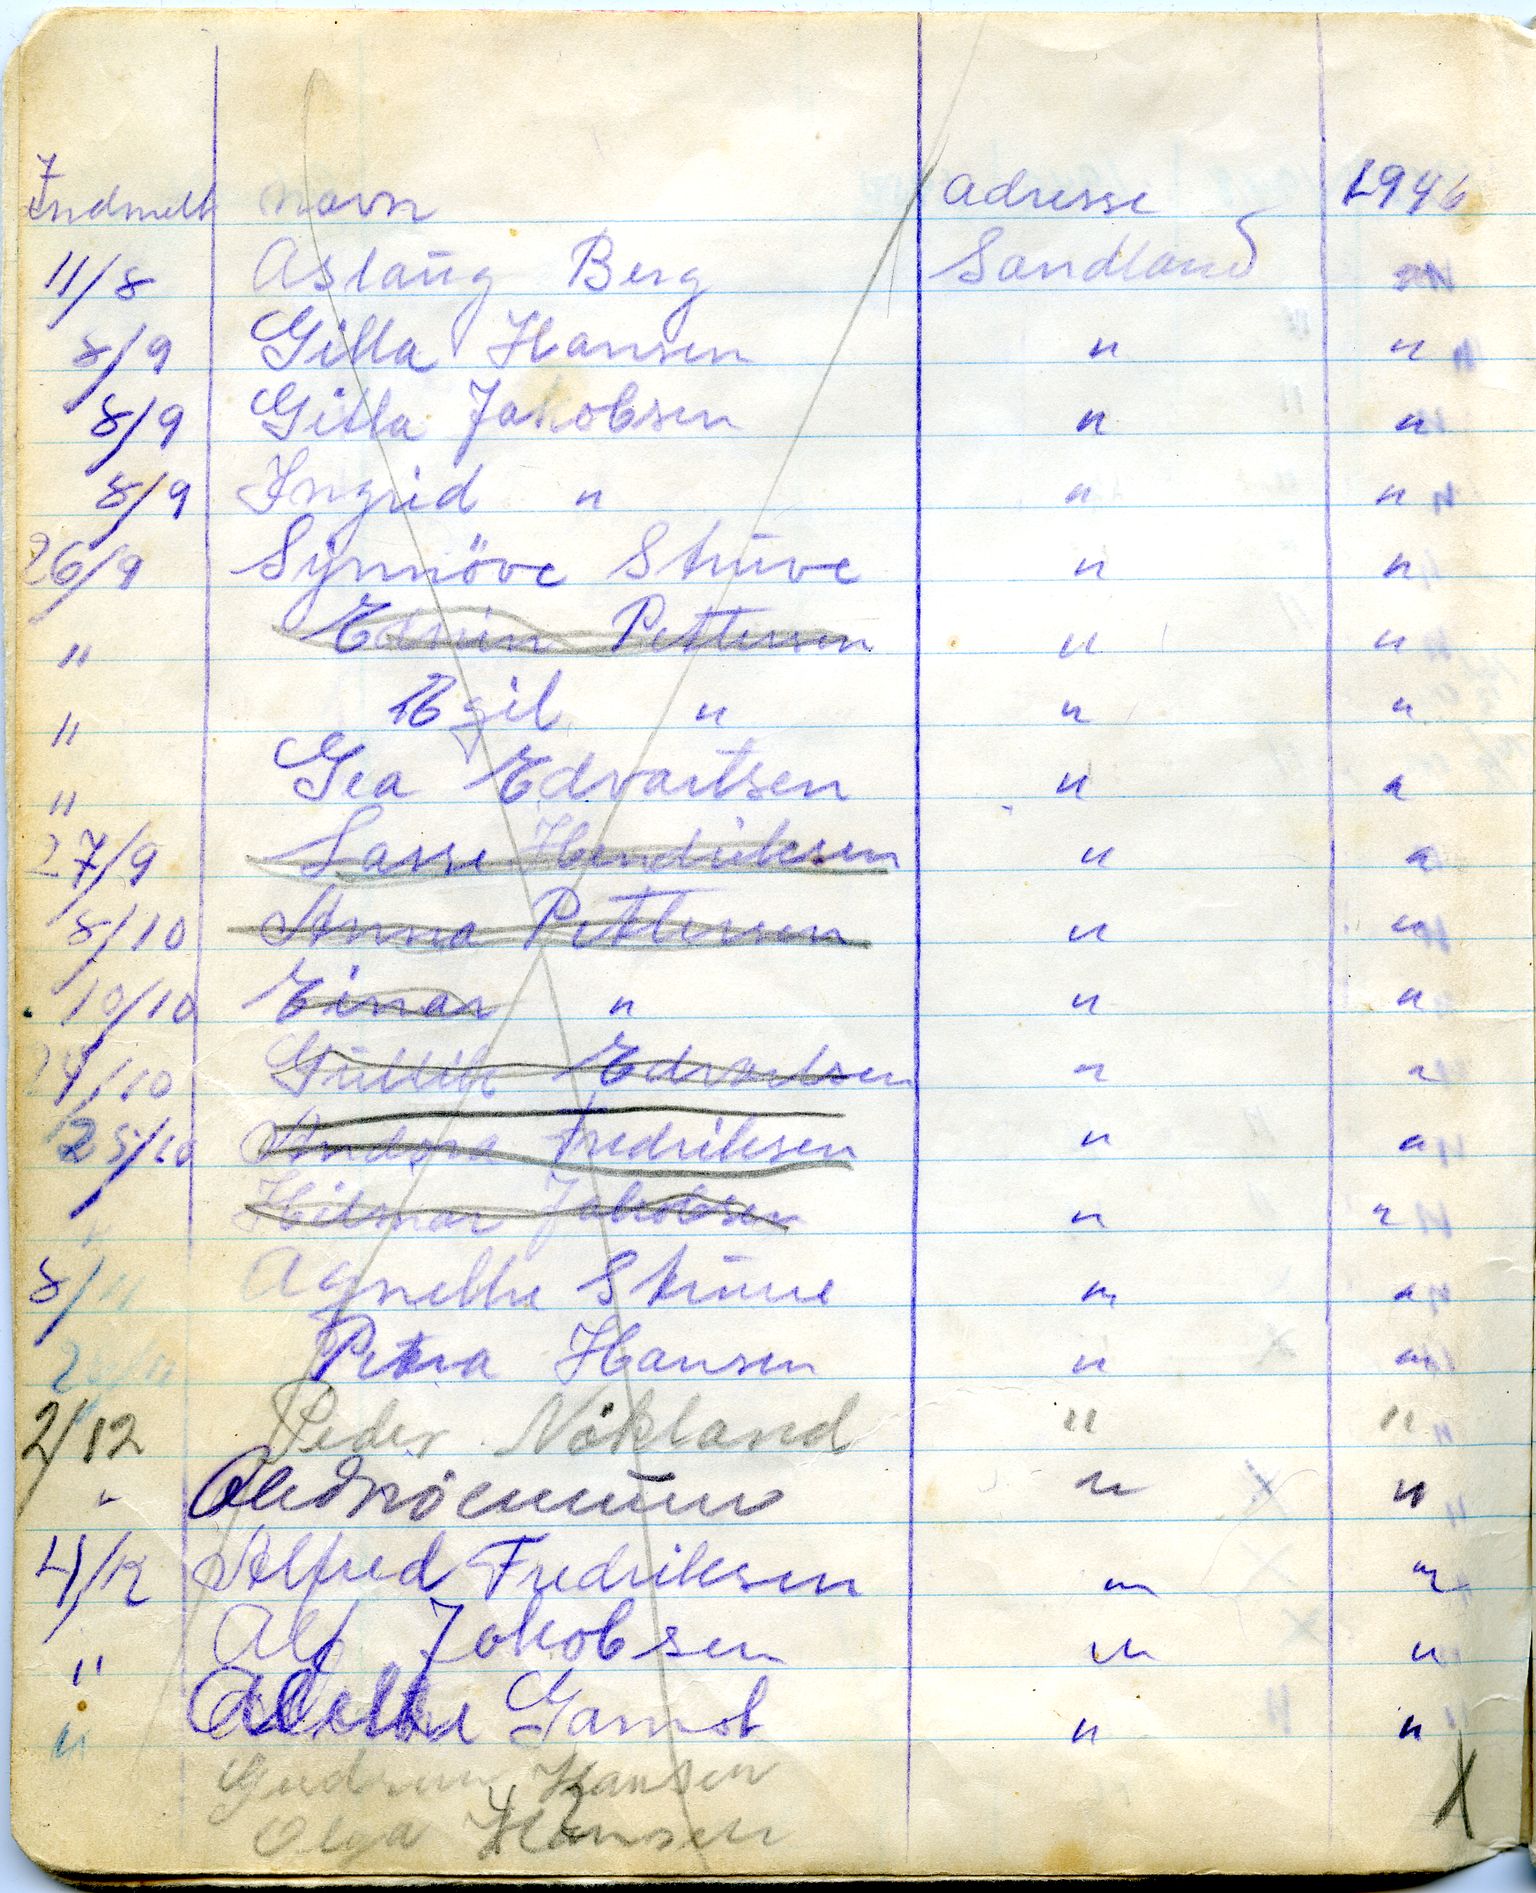 Indmelt navn adresse 1946
11/8 Aslaug Berg Sandland "
8/9 Gitta Hansen " "
8/9 Gitta Jakobsen " "
8/9 Ingrid " " "
26/9 Synnöve Struve " "
" Edvin Pettersen " "
" Egil " " "
" Gea Edvartsen " "
27/9 Lasse Hendriksen " "
8/10 Anna Pettersen " "
10/10 Einar " " "
24/10 Edvartsen " "
25/10 Andora Fredriksen " "
" Hilmar Jakobsen " "
8/11 Agnethe Struve " "
Petra Hansen " "
2/12 Peder Nökland " "
" " "
4/12 Alfred Fredriksen " "
" Alf Jakobsen " "
" Alethe Gamst " "
Gudrun Hansen
Olga Hansen
X